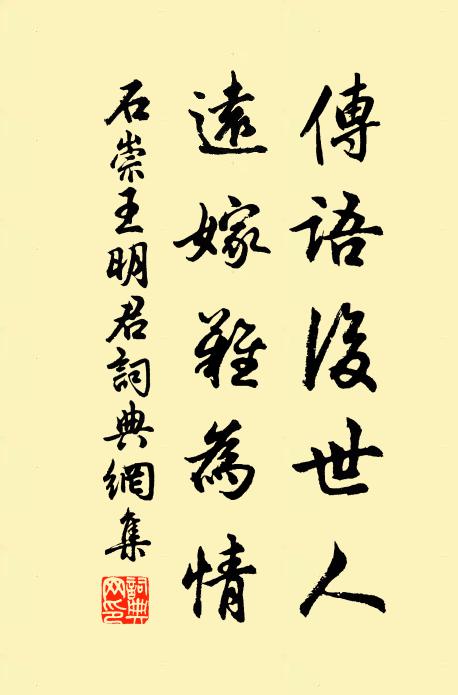 傳語後世人
遠嫁難為情
石崇王明君詞典網集
詞典网印